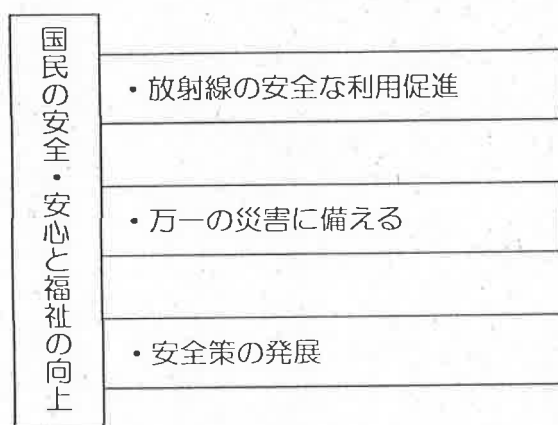 国民の安全・安心と福祉の向上
・放射線の安全な利用促進
・万一の災害に備える
・安全策の発展